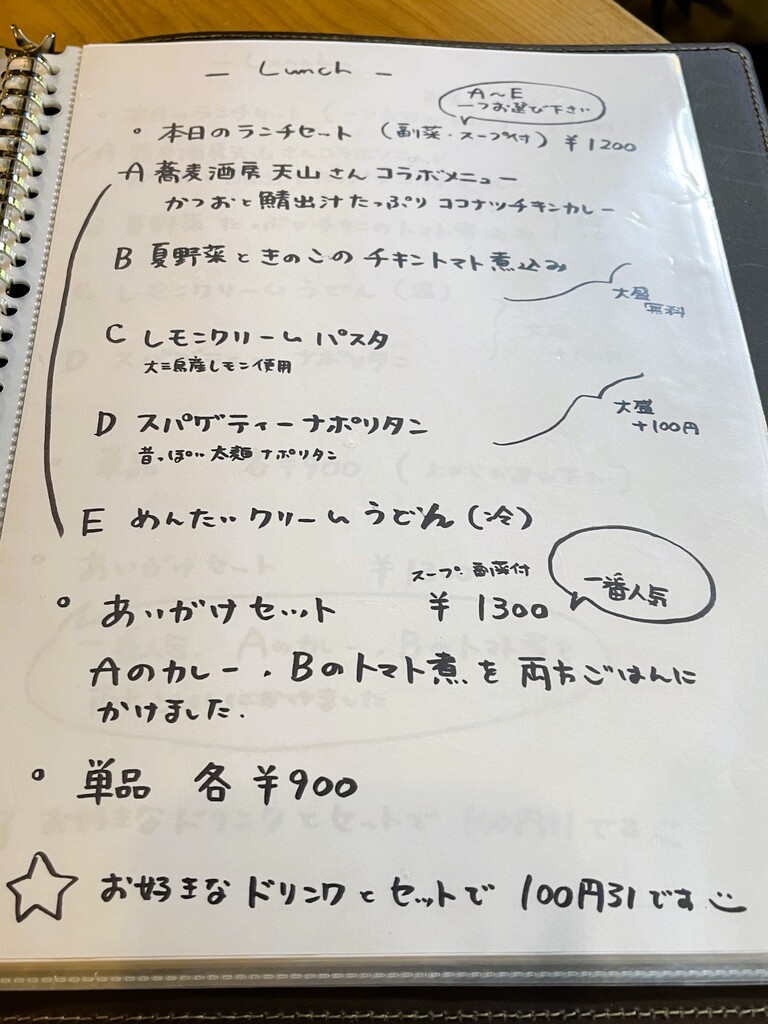 - Lunch -
A〜E
一つお選び下さい
° 本日のランチセート (副菜・スープ付) ¥1200
A 蕎麦酒房 天山さん コラボメニュー
かつおと鯖出汁たっぷり ココナツチキンカレー
B 夏野菜ときのこの チキントマト煮込み
大盛
無料
C レモンクリーム パスタ
大三島産レモン使用
D スパゲティーナポリタン
大盛
+100円
昔っぽい 太麺 ナポリタン
E めんたいクリームうどん (冷)
スープ・副菜付
° あいがけセット ¥1300
一番人気
Aのカレー、Bのトマト煮を両方ごはんに
かけました.
° 単品 各 ¥900
☆ お好きなドリンクとセットで 100円引です